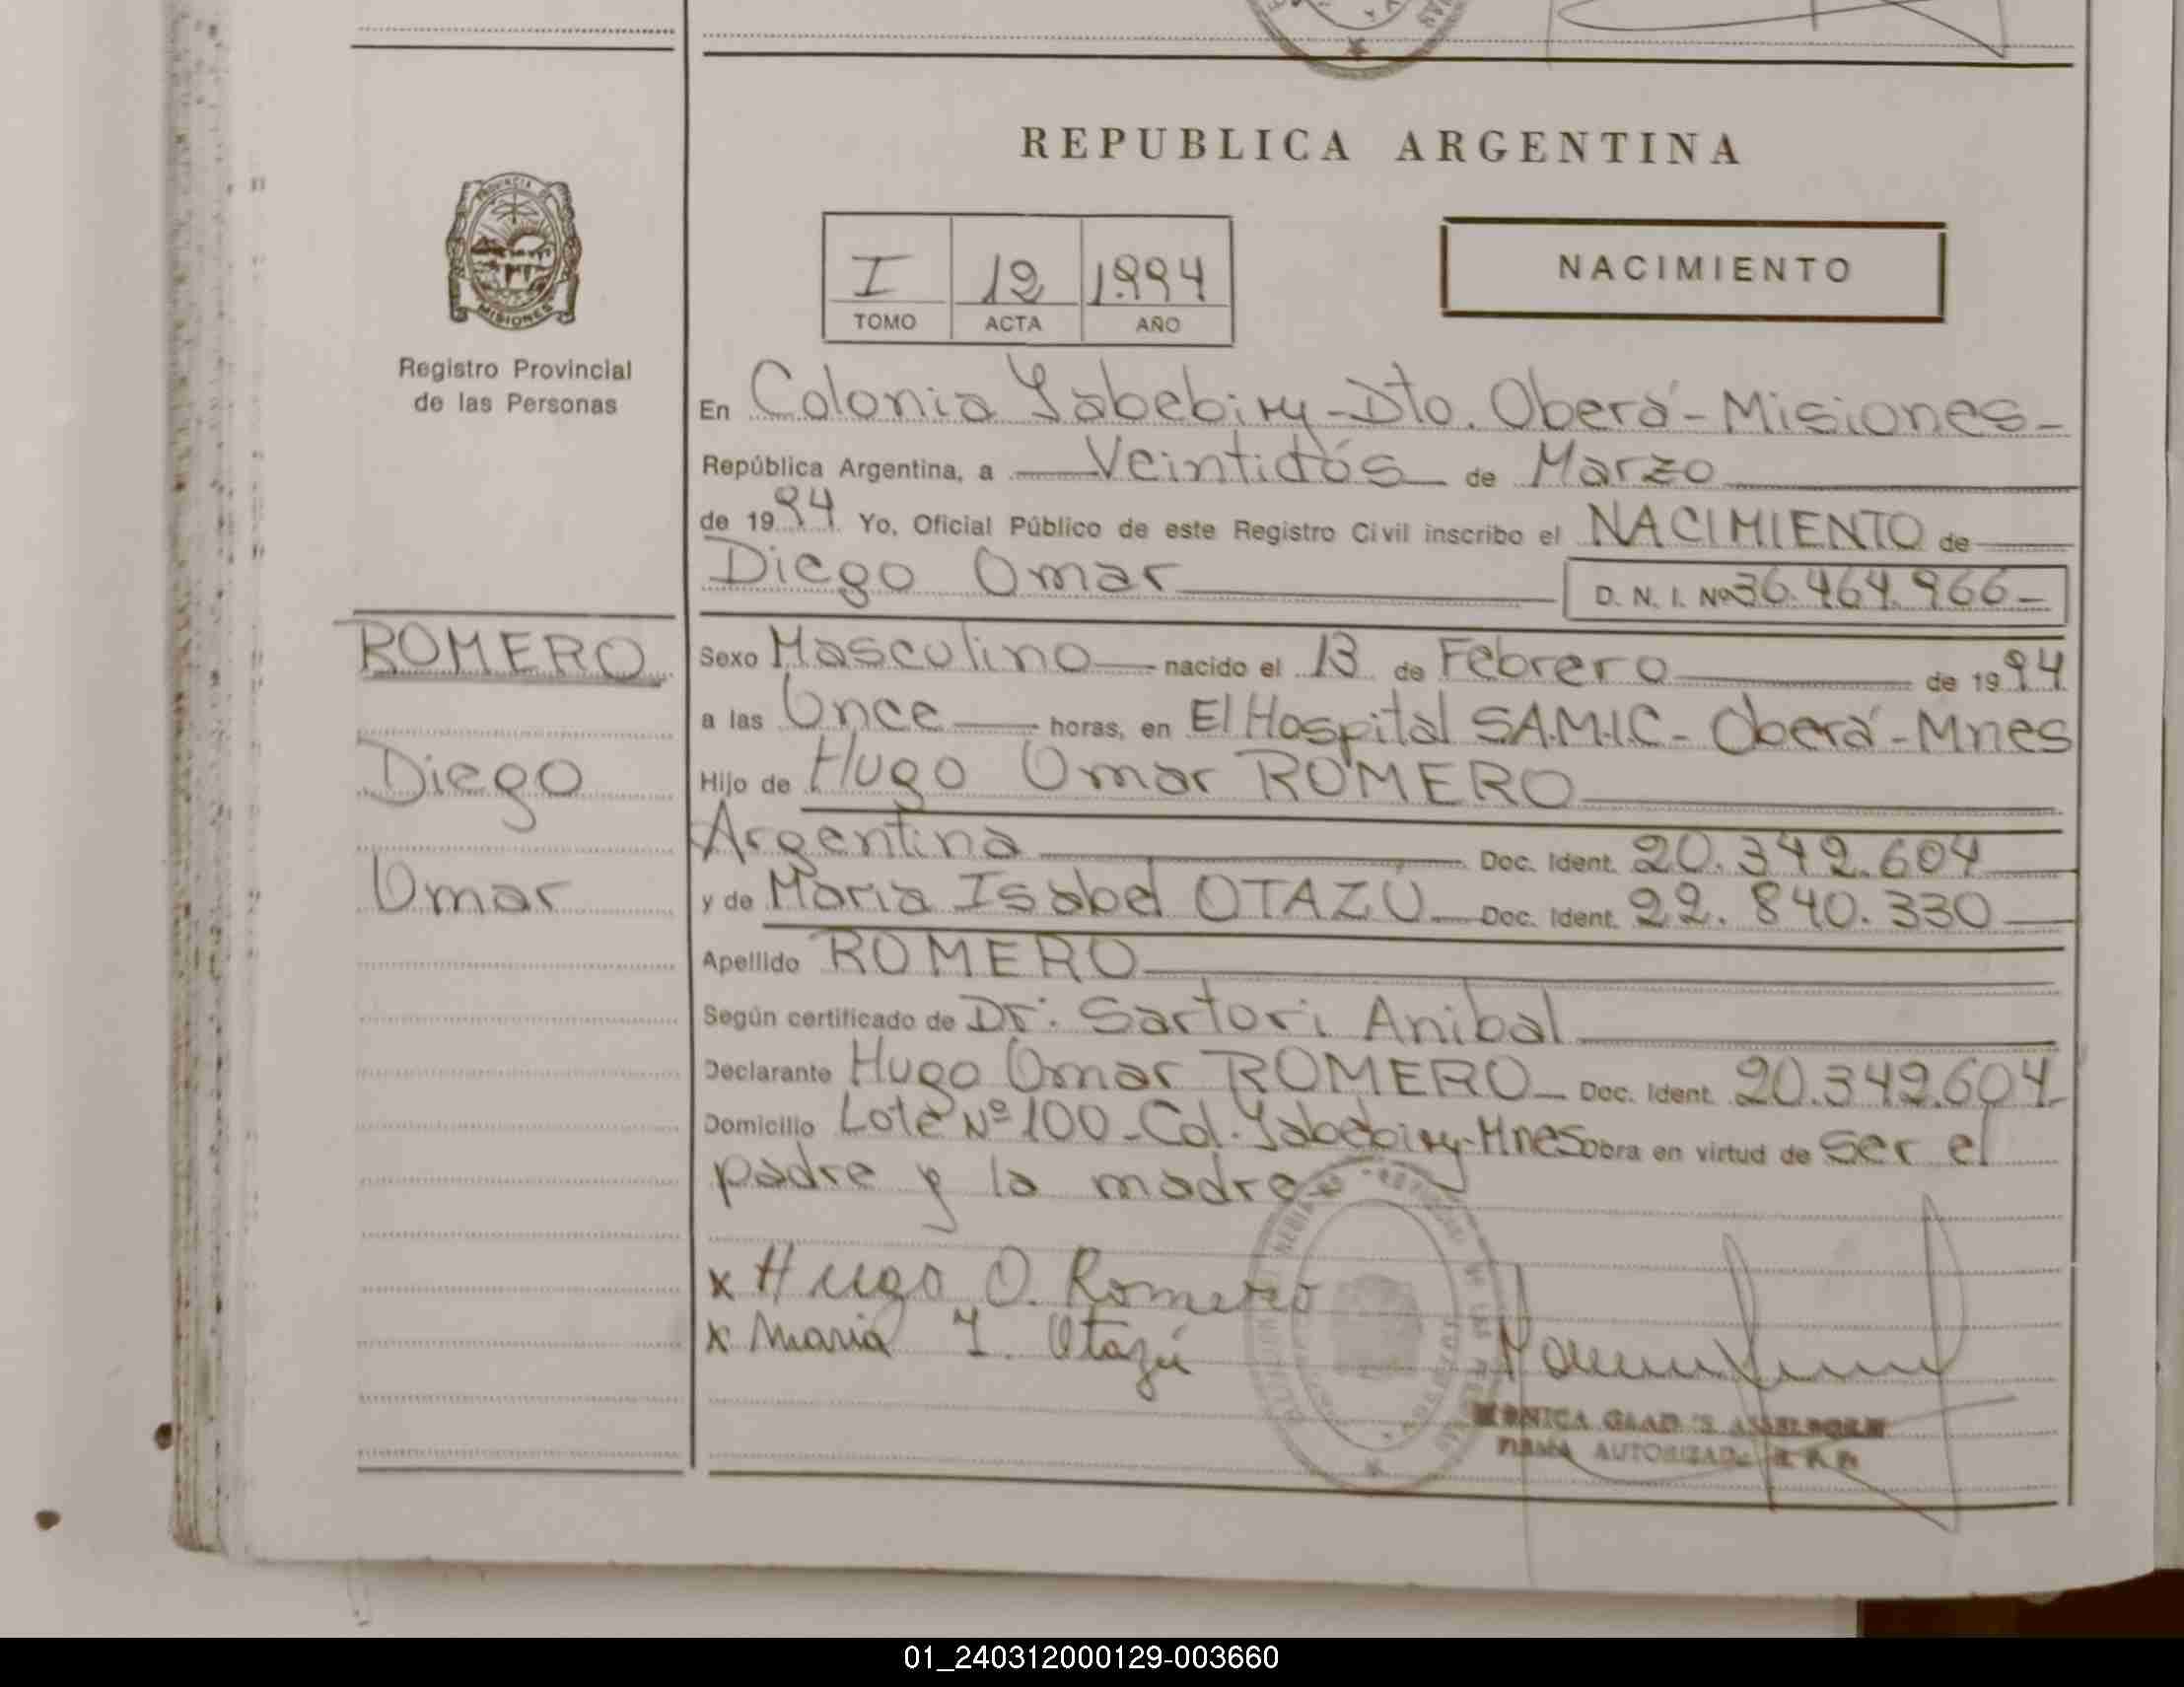 REPUBLICA ARGENTINA
PROVINCIA DE
MISIONES
Registro Provincial
de las Personas
I 12 1994
TOMO ACTA AÑO
NACIMIENTO
En Colonia Yabebiry - Dto. Oberá - Misiones -
República Argentina, a Veintidós de Marzo
de 1994 Yo, Oficial Público de este Registro Civil inscribo el NACIMIENTO de
Diego Omar D. N. I. Nº 36.464.966 -
ROMERO
Diego
Omar
Sexo Masculino nacido el 13 de Febrero de 1994
a las Once horas, en El Hospital SA.M.I.C - Oberá - Mnes
Hijo de Hugo Omar ROMERO
Argentina Doc. Ident. 20.342.604
y de Maria Isabel OTAZU Doc. Ident. 22.840.330
Apellido ROMERO
Según certificado de Dr: Sartori Anibal
Declarante Hugo Omar ROMERO Doc. Ident. 20.342.604
Domicilio Lote Nº 100 - Col. Yabebiry - Mnes obra en virtud de ser el
padre y la madre
x Hugo O. Romero
x Maria I. Otazú
FIRMA AUTORIZADA R. P. P.
01_240312000129-003660